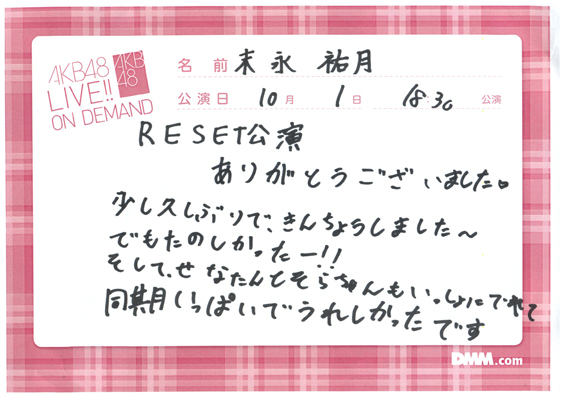 AKB48
LIVE!!
ON DEMAND
AKB
48
名前 末永 祐月
公演日 10月 1日 18:30 公演
RESET公演
ありがとうございました。
少し久しぶりで、きんちょうしました〜
でもたのしかったー!!
そして、せなたんとそらちゃんもいっしょにでれて
同期いっぱいでうれしかったです
DMM.com